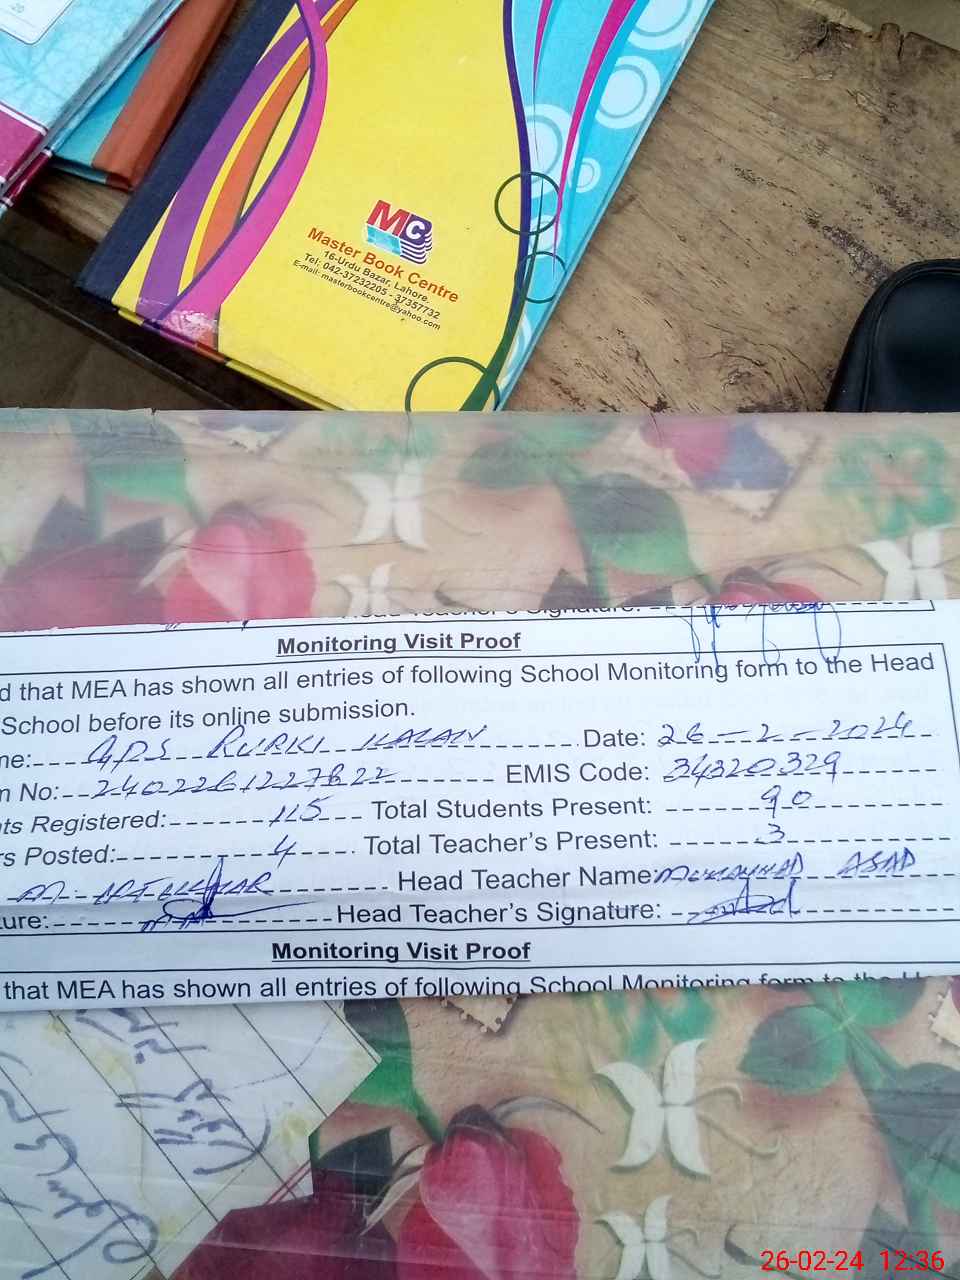 20
MC
Master Book Centre
16-Urdu Bazar, Lahore.
Tel: 042-37232205 - 37357732
E-mail: masterbookcentre@yahoo.com
Head Teacher's Signature:
Monitoring Visit Proof
d that MEA has shown all entries of following School Monitoring form to the Head
School before its online submission.
ne: GPS RURKI KALAN Date: 26-2-2024
n No: EMIS Code: 34320329
nts Registered: 115 Total Students Present: 90
rs Posted: 4 Total Teacher's Present: 3
Head Teacher Name: MUHAMMAD ASAD
ture: Head Teacher's Signature:
Monitoring Visit Proof
that MEA has shown all entries of following School Monitoring form to the
26-02-24 12:36